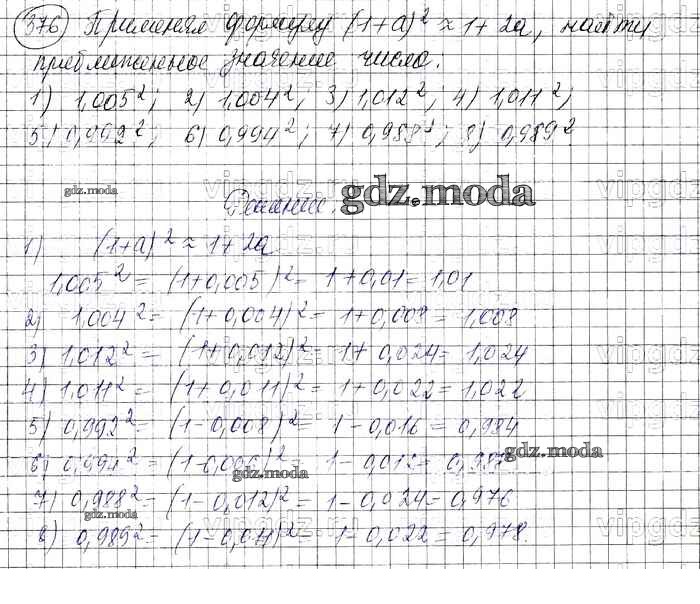 376 Применяя формулу (1+a)² ≈ 1+2a, найти
приближенное значение числа:
1) 1,005²; 2) 1,004²; 3) 1,012²; 4) 1,011²;
5) 0,992²; 6) 0,994²; 7) 0,988²; 8) 0,989²
gdz.moda
Решение. gdz.moda
1) (1+a)² ≈ 1+2a
1,005² = (1+0,005)² = 1+0,01 = 1,01
2) 1,004² = (1+0,004)² = 1+0,008 = 1,008
3) 1,012² = (1+0,012)² = 1+0,024 = 1,024
4) 1,011² = (1+0,011)² = 1+0,022 = 1,022
5) 0,992² = (1-0,008)² = 1-0,016 = 0,984
gdz.moda
6) 0,994² = (1-0,006)² = 1-0,012 =
gdz.moda
7) 0,988² = (1-0,012)² = 1-0,024 = 0,976
gdz.moda
8) 0,989² = (1-0,011)² = 1-0,022 = 0,978.